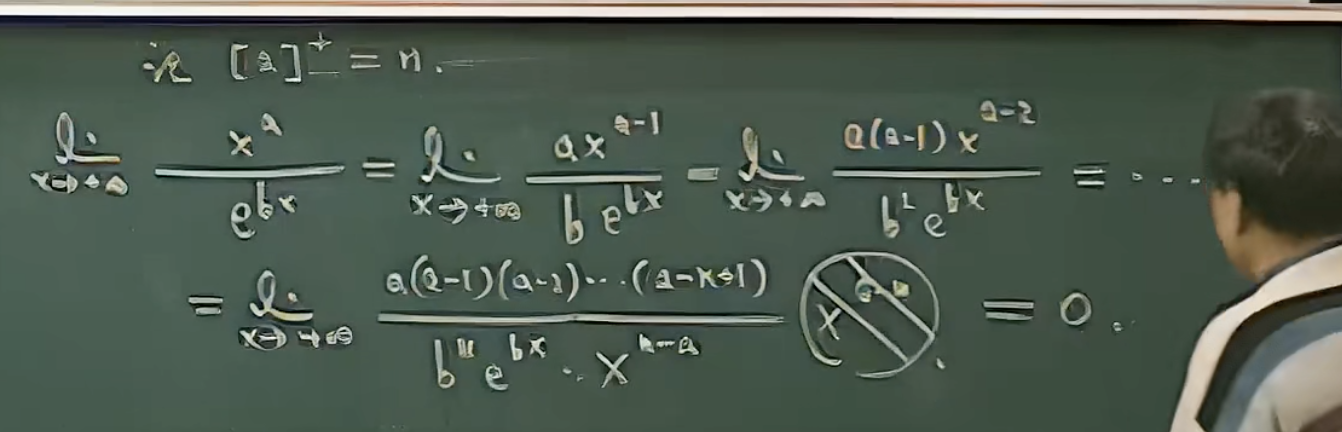 [a]+1 = n.
lim x→+∞ x^a / e^{bx} = lim x→+∞ a x^{a-1} / b e^{bx} = lim x→+∞ a(a-1) x^{a-2} / b² e^{bx} = ...
= lim x→+∞ a(a-1)(a-2)...(a-n+1) / b^n e^{bx} · x^{n-a} = 0.